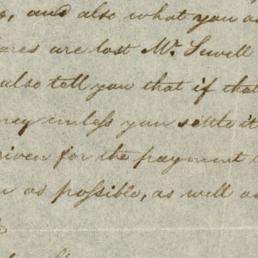 and also what you as
are lost Mr. Sewell
also tell you that if that
ney unless you settle it
given for the payment
as possible, as well as